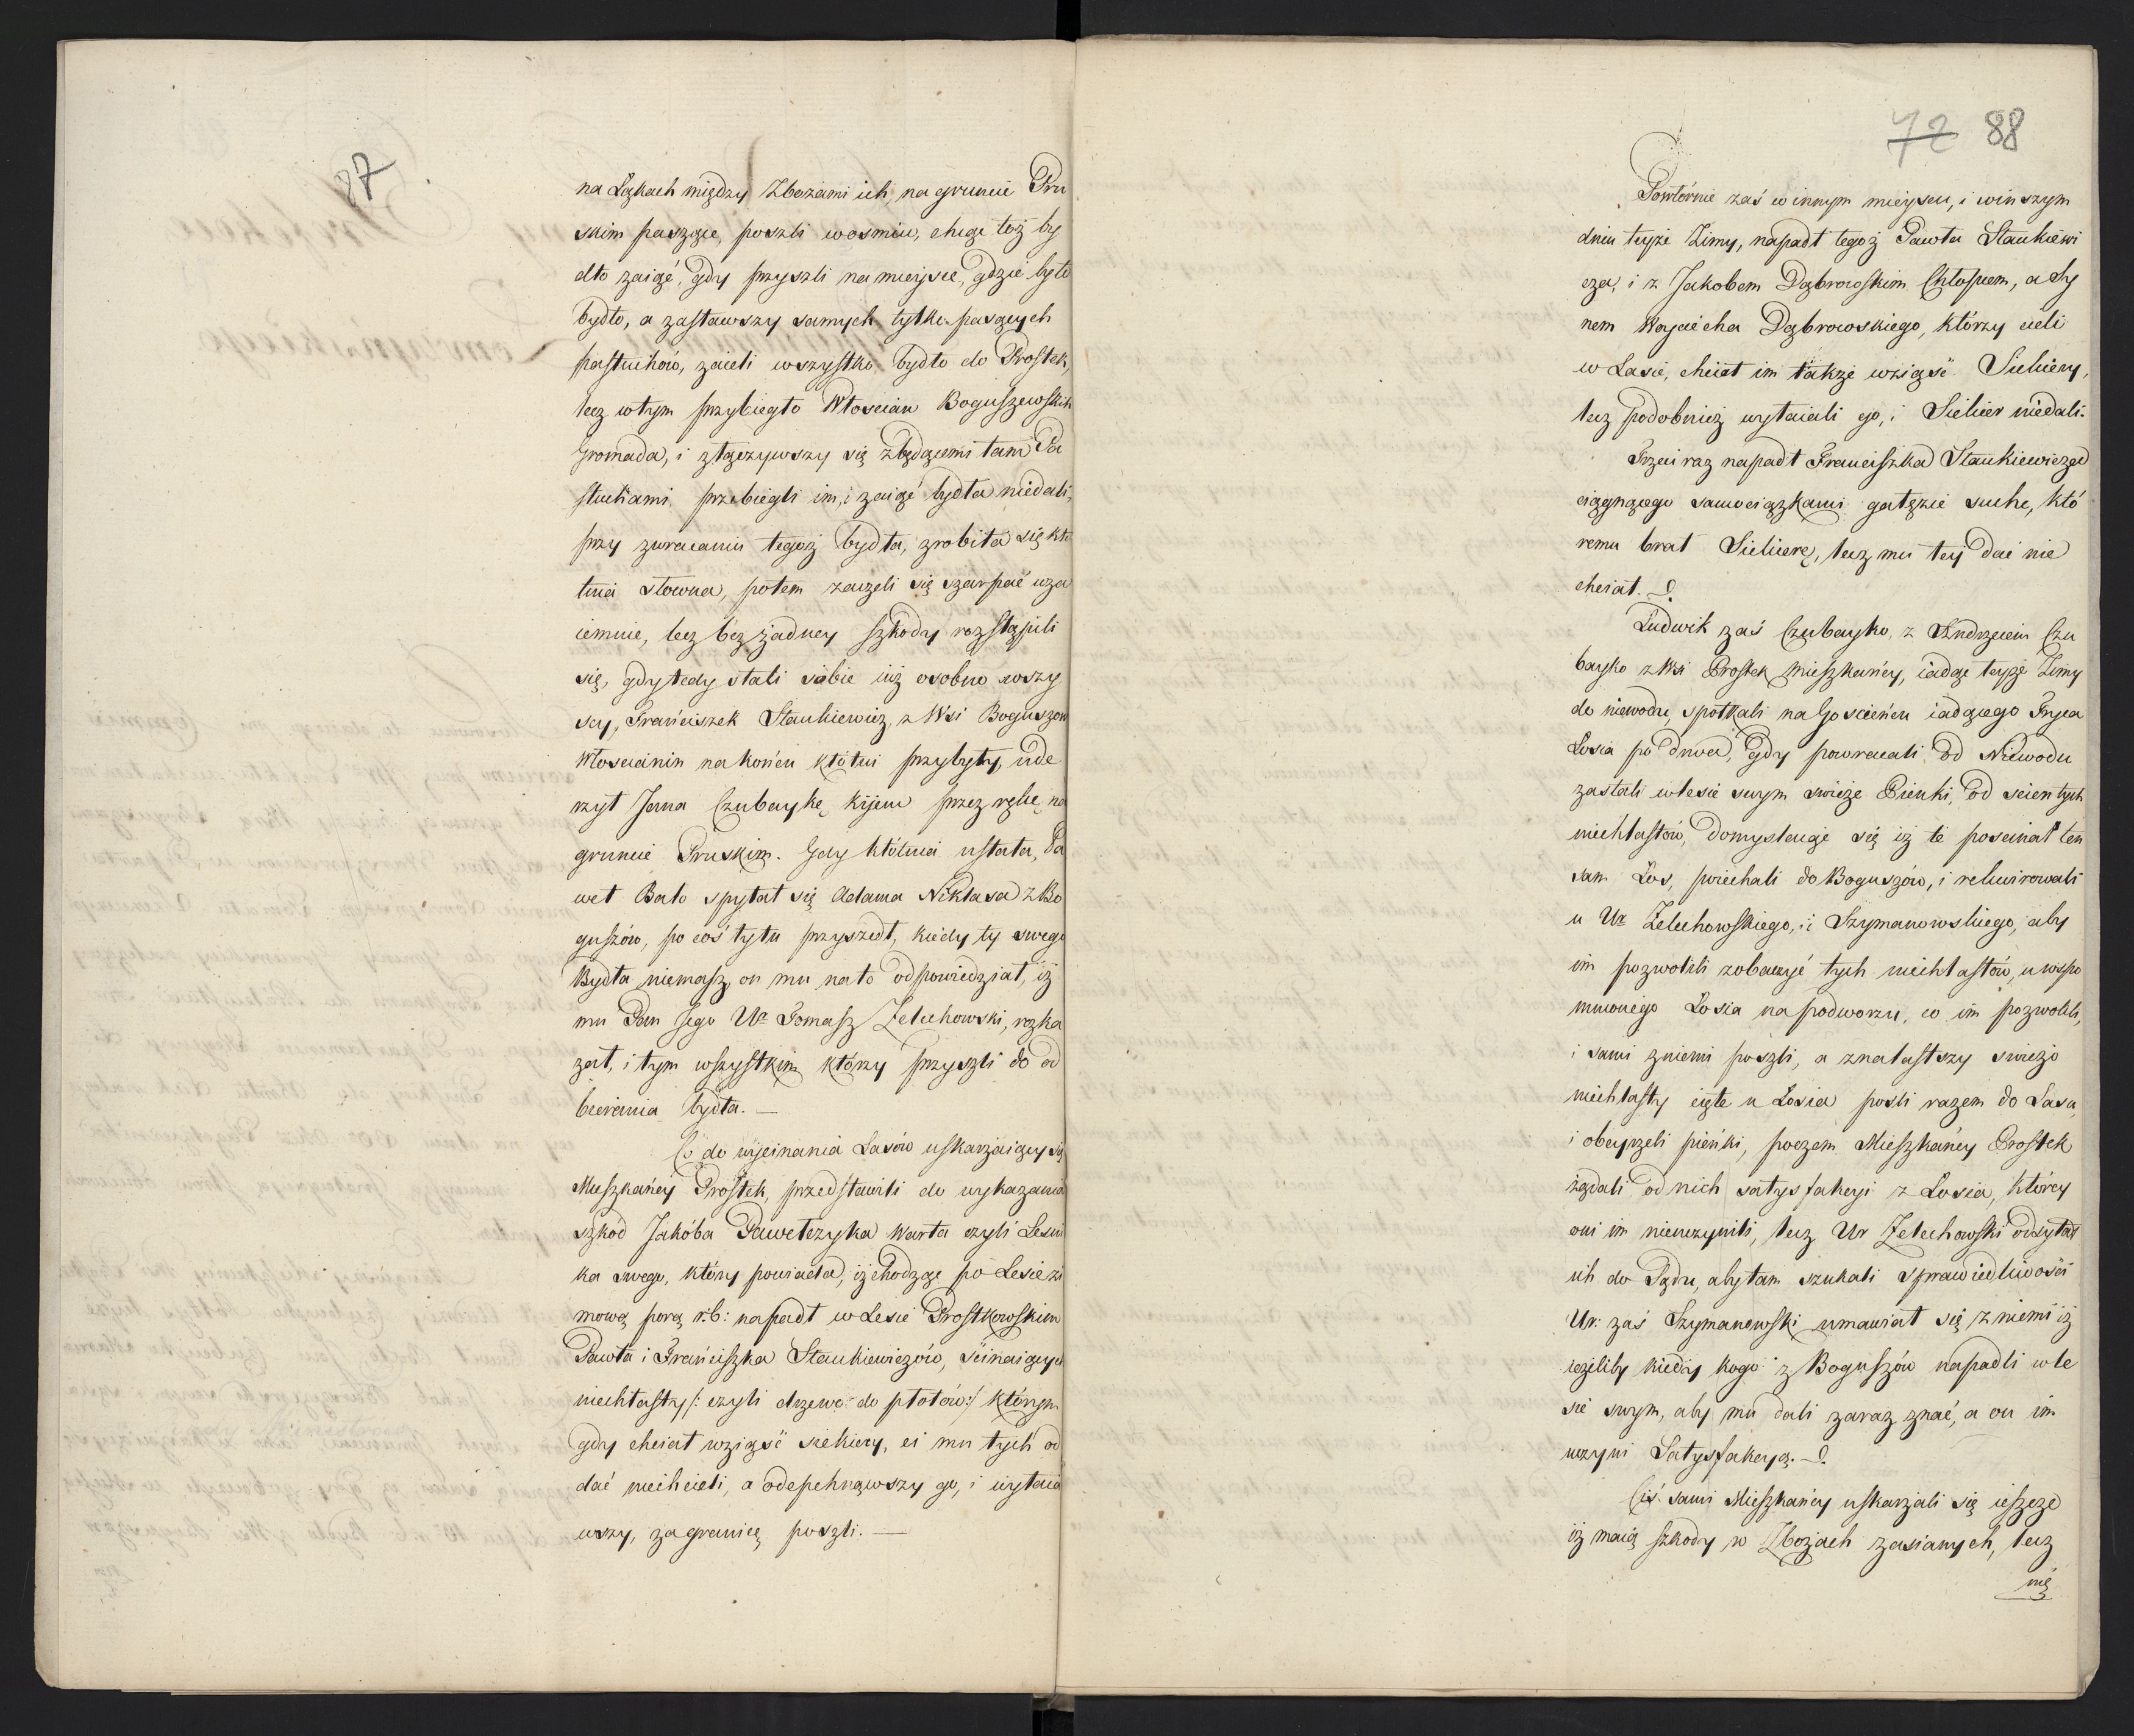 87
na Łąkach między Zbożami ich, na gruncie Pru
skim pasząc, poszli wosmiu, chcąc toż by
dło zaiąć, gdy przyszli na mieysce, gdzie było
bydło, a zastawszy samych tylko pasących
pastuchów, zaieli wszystko bydło do Prostek,
lecz wtym przybiegło Włoscian Boguszewskich
Gromada, i złączywszy się zbędącemi tam Pa
stuchami przebiegli im, i zaiąć bydła niedali,
przy zwracaniu tegoż bydła, zrobiła się kłó
tnia słowna, potem zaczeli się szarpać wza
iemnie, lecz bez żadney szkody rozstąpili
się, gdy tedy stali sobie iuż osobno wszy
scy, Franciszek Stankiewicz z Wsi Boguszow
Włoscianin na końcu kłótni przybyły, ude
rzył Jana Czubaykę kijem przez rękę na
gruncie Pruskim. Gdy kłótnia ustała, Pa
weł Bało spytał się Adama Niklasa z Bo
guszów, po coś ty tu przyszedł, kiedy ty swego
Bydła niemasz, on mu na to odpowiedział, iż
mu Pan Jego Ur Tomasz Zelechowski, rozka
zał, i tym wszystkim którzy przyszli do od
bierania bydła. —
Co do wycinania Lasów uskarzaiący się
Mieszkańcy Prostek, przedstawili do wykazania
szkod Jakóba Pawelczyka Warta czyli Lesni
ka swego, który powiada, iż chodząc po Lesie zi
mową porą r: b: napadł w Lesie Prostkowskim
Pawła i Franciszka Stankiewiczów, ścinaiących
niechlasty /: czyli drzewo do płotów:/ którym
gdy chciał wziąść siekiery, ci mu tych od
dać niechcieli, a odepchnąwszy go, i wyłaia
wszy, za granicę poszli. —
72 88
Powtórnie zaś w innym mieyscu, i winszym
dniu teyże Zimy, napadł tegoż Pawła Stankiewi
cza, i z Jakobem Dąbrowskim Chłopcem, a Sy
nem Woyciecha Dąbrowskiego, którzy cieli
w Lasie, chciał im także wziąść Siekiery,
lecz podobnież wyłaiali go, i Siekier niedali.
Trzeci raz napadł Franciszka Stankiewicza
ciągnącego samociążkami gałęzie suche, któ
remu brał Siekierę, lecz mu tey dać nie
chciał.
Ludwik zaś Czubayko, z Andrzeiem Czu
bayko z Wsi Prostek Mieszkańcy, iadąc teyże Zimy
do niewodu, spotkali na Gościeńcu iadącego Fryca
Łosia po drwa, gdy powracali od Niewodu
zastali w lesie swym swieże Pieńki, od scientych
niechlastów, domyslaiąc się iż te poscinał ten
sam Łos, pojechali do Boguszów, i rekwirowali
u Ur Zelechowskiego, i Szymanowskiego, aby
im pozwolili zobaczyć tych niechlastów, u wspo
mnionego Łosia na podworzu, co im pozwolili,
i sami zniemi poszli, a znalastszy swiezo
niechlasty cięte u Łosia posli razem do Lasu
i obeyrzeli pieńki, poczem Mieszkańcy Prostek
żądali od nich satysfakcyi z Łosia, którey
oni im nieuczynili, lecz Ur Zelechowski odsyłał
ich do Sądu, aby tam szukali sprawiedliwości
Ur: zaś Szymanowski umawiał się z niemi iż
iezeliby kiedy kogo z Boguszów napadli w le
sie swym, aby mu dali zaraz znać, a on im
uczyni Satysfakcyą.
Ciż sami Mieszkańcy uskarzali się ieszcze
iż maią szkody w Zbożach zasianych, lecz
nię